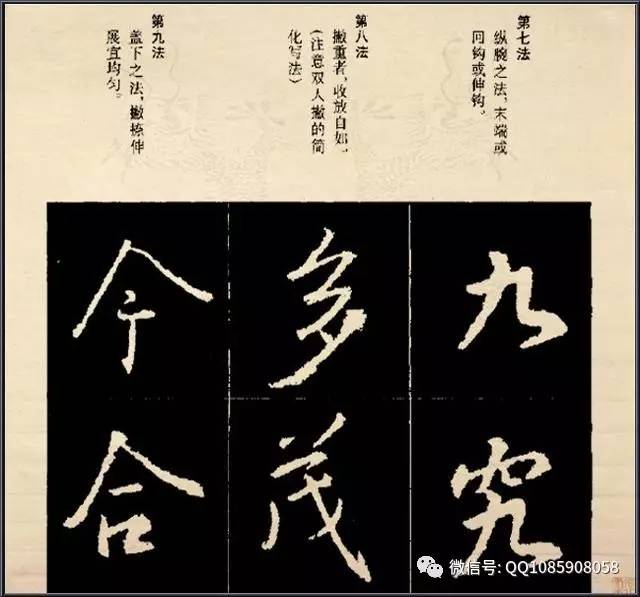 第七法
纵腕之法，末端或
回钩或伸钩。
第八法
撇重者，收放自如。
(注意双人撇的简
化写法)
第九法
盖下之法，撇捺伸
展宜均匀。
九
究
多
茂
今
合
微信号: QQ1085908058